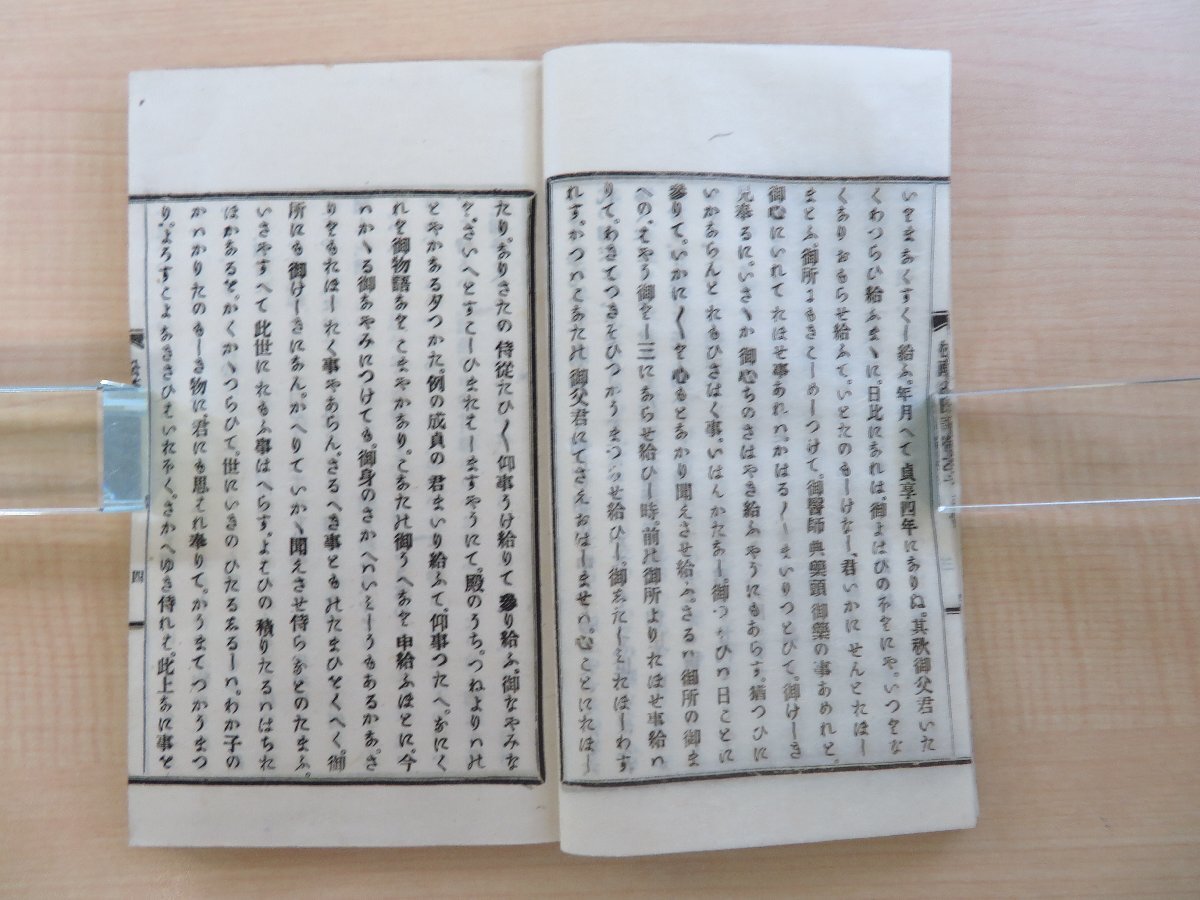 いとまなくすぐし給ふ。年月へて貞享四年になりぬ。其秋御父君いた
くわつらひ給ふまゝに。日比になれは。御よはひの不どにや。いつとな
くなりおもらせ給ふて。いとたのもしけなし。君いかにせんとたほし
まとふ。御所にもきこしめしつけて。御醫師典藥頭御藥の事なめれと。
御心にいれてたほせ事あれハ。かはる〳〵まいりつとひて。御けしき
見奉るに。いさゝか御心ちのさはやき給ふやうにもあらす。猶つひに
いかならんとれもひさはく事。いはんかたなし。御つかひハ日ことに
參りて。いかに〳〵と心もとなかり聞えさせ給ふ。さるハ御所の御ま
への。そやう御とし三にならせ給ひし時。前の御所よりたほせ事給ハ
りて。わきてつきそひつかうまつらせ給ひし。御ゐたしみたほしわす
れす。かつハこなたの御父君にてさえおはしませハ。心ことにたほし
たり。なりさたの侍從たひ〳〵仰事うけ給りて參り給ふ。御なやみな
と。さいへとすこしひまれえしますやうにて。殿のうち。つねよりハの
とやかなる夕つかた。例の成貞の君まいり給ふて。仰事つたへ。なにく
れと御物語なとこまやかなり。こなたの御うへなと申給ふほとに。今
ハかゝる御なやみにつけても。御身のさかへハいみしうもあるかな。さ
りともれほしれく事やあらん。さるへき事ともの たまひとくへく。御
所にも御けしきになん。かへりていかゝ聞えさせ侍らなとのたまふ。
いさやすへて此世にれもふ事はへらす。よはひの積りたるハはちれ
ほかなると。かくかゝつらひて。世にいきのひたるゐるしハ。わか子の
かハかりたのもしき物に。君にも思それ奉りて。かうまてつかうまつ
り。よろすとよなきさひえいれふく。さかへゆき侍れと。此上なに事と
四